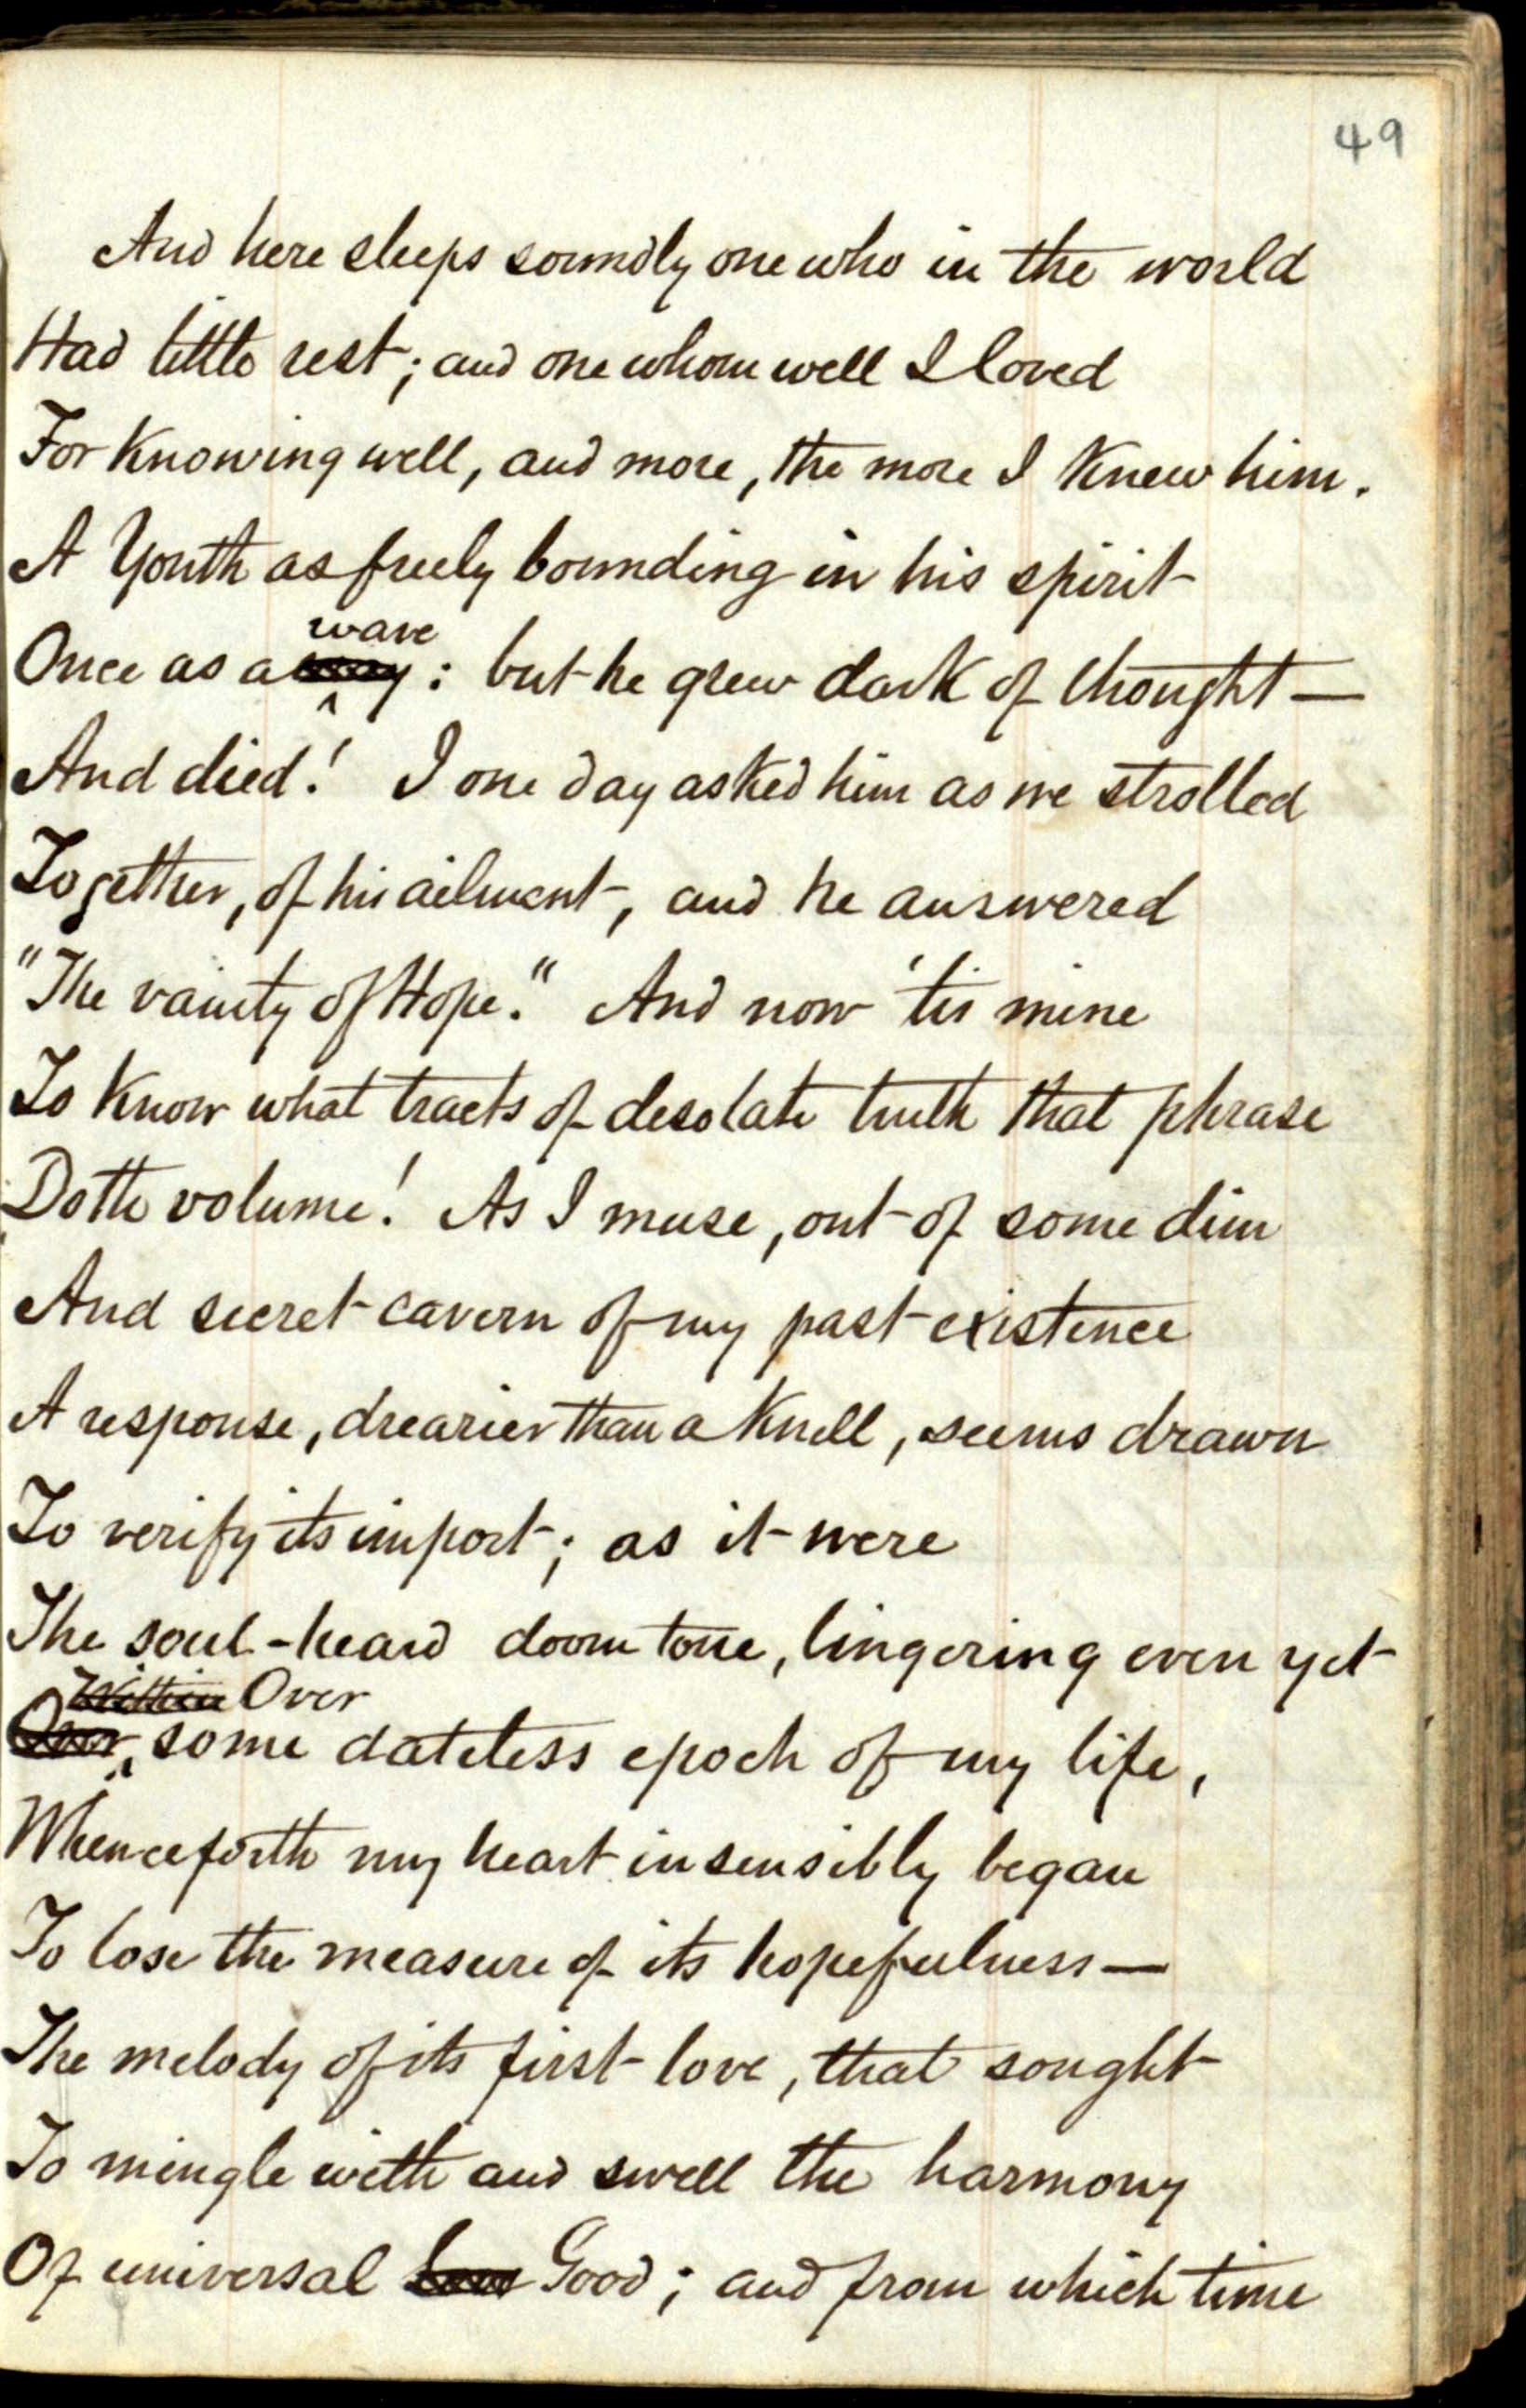 49
And here sleeps soundly one who in the world
Had little rest; and one whom well I loved
For knowing well, and more, the more I knew him.
A Youth as freely bounding in his spirit
wave
Once as a : but he grew dark of thought —
And died! I one day asked him as we strolled
Together, of his ailment, and he answered
"The vanity of Hope." And now 'tis mine
To know what tracts of desolate truth that phrase
Doth volume! As I muse, out of some dim
And secret cavern of my past existence
A response, drearier than a knell, seems drawn
To verify its import; as it were
The soul-heard doom tone, lingering even yet
Within Over
Over, some dateless epoch of my life,
Whenceforth my heart insensibly began
To lose the measure of its hopefulness —
The melody of its first love, that sought
To mingle with and swell the harmony
Of universal Love Good; and from which time